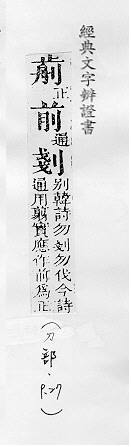 經典文字辯證書
正
前通
剗别韓詩勿剗勿伐今詩
通用翦實應作前爲正
(刀部, P.27)